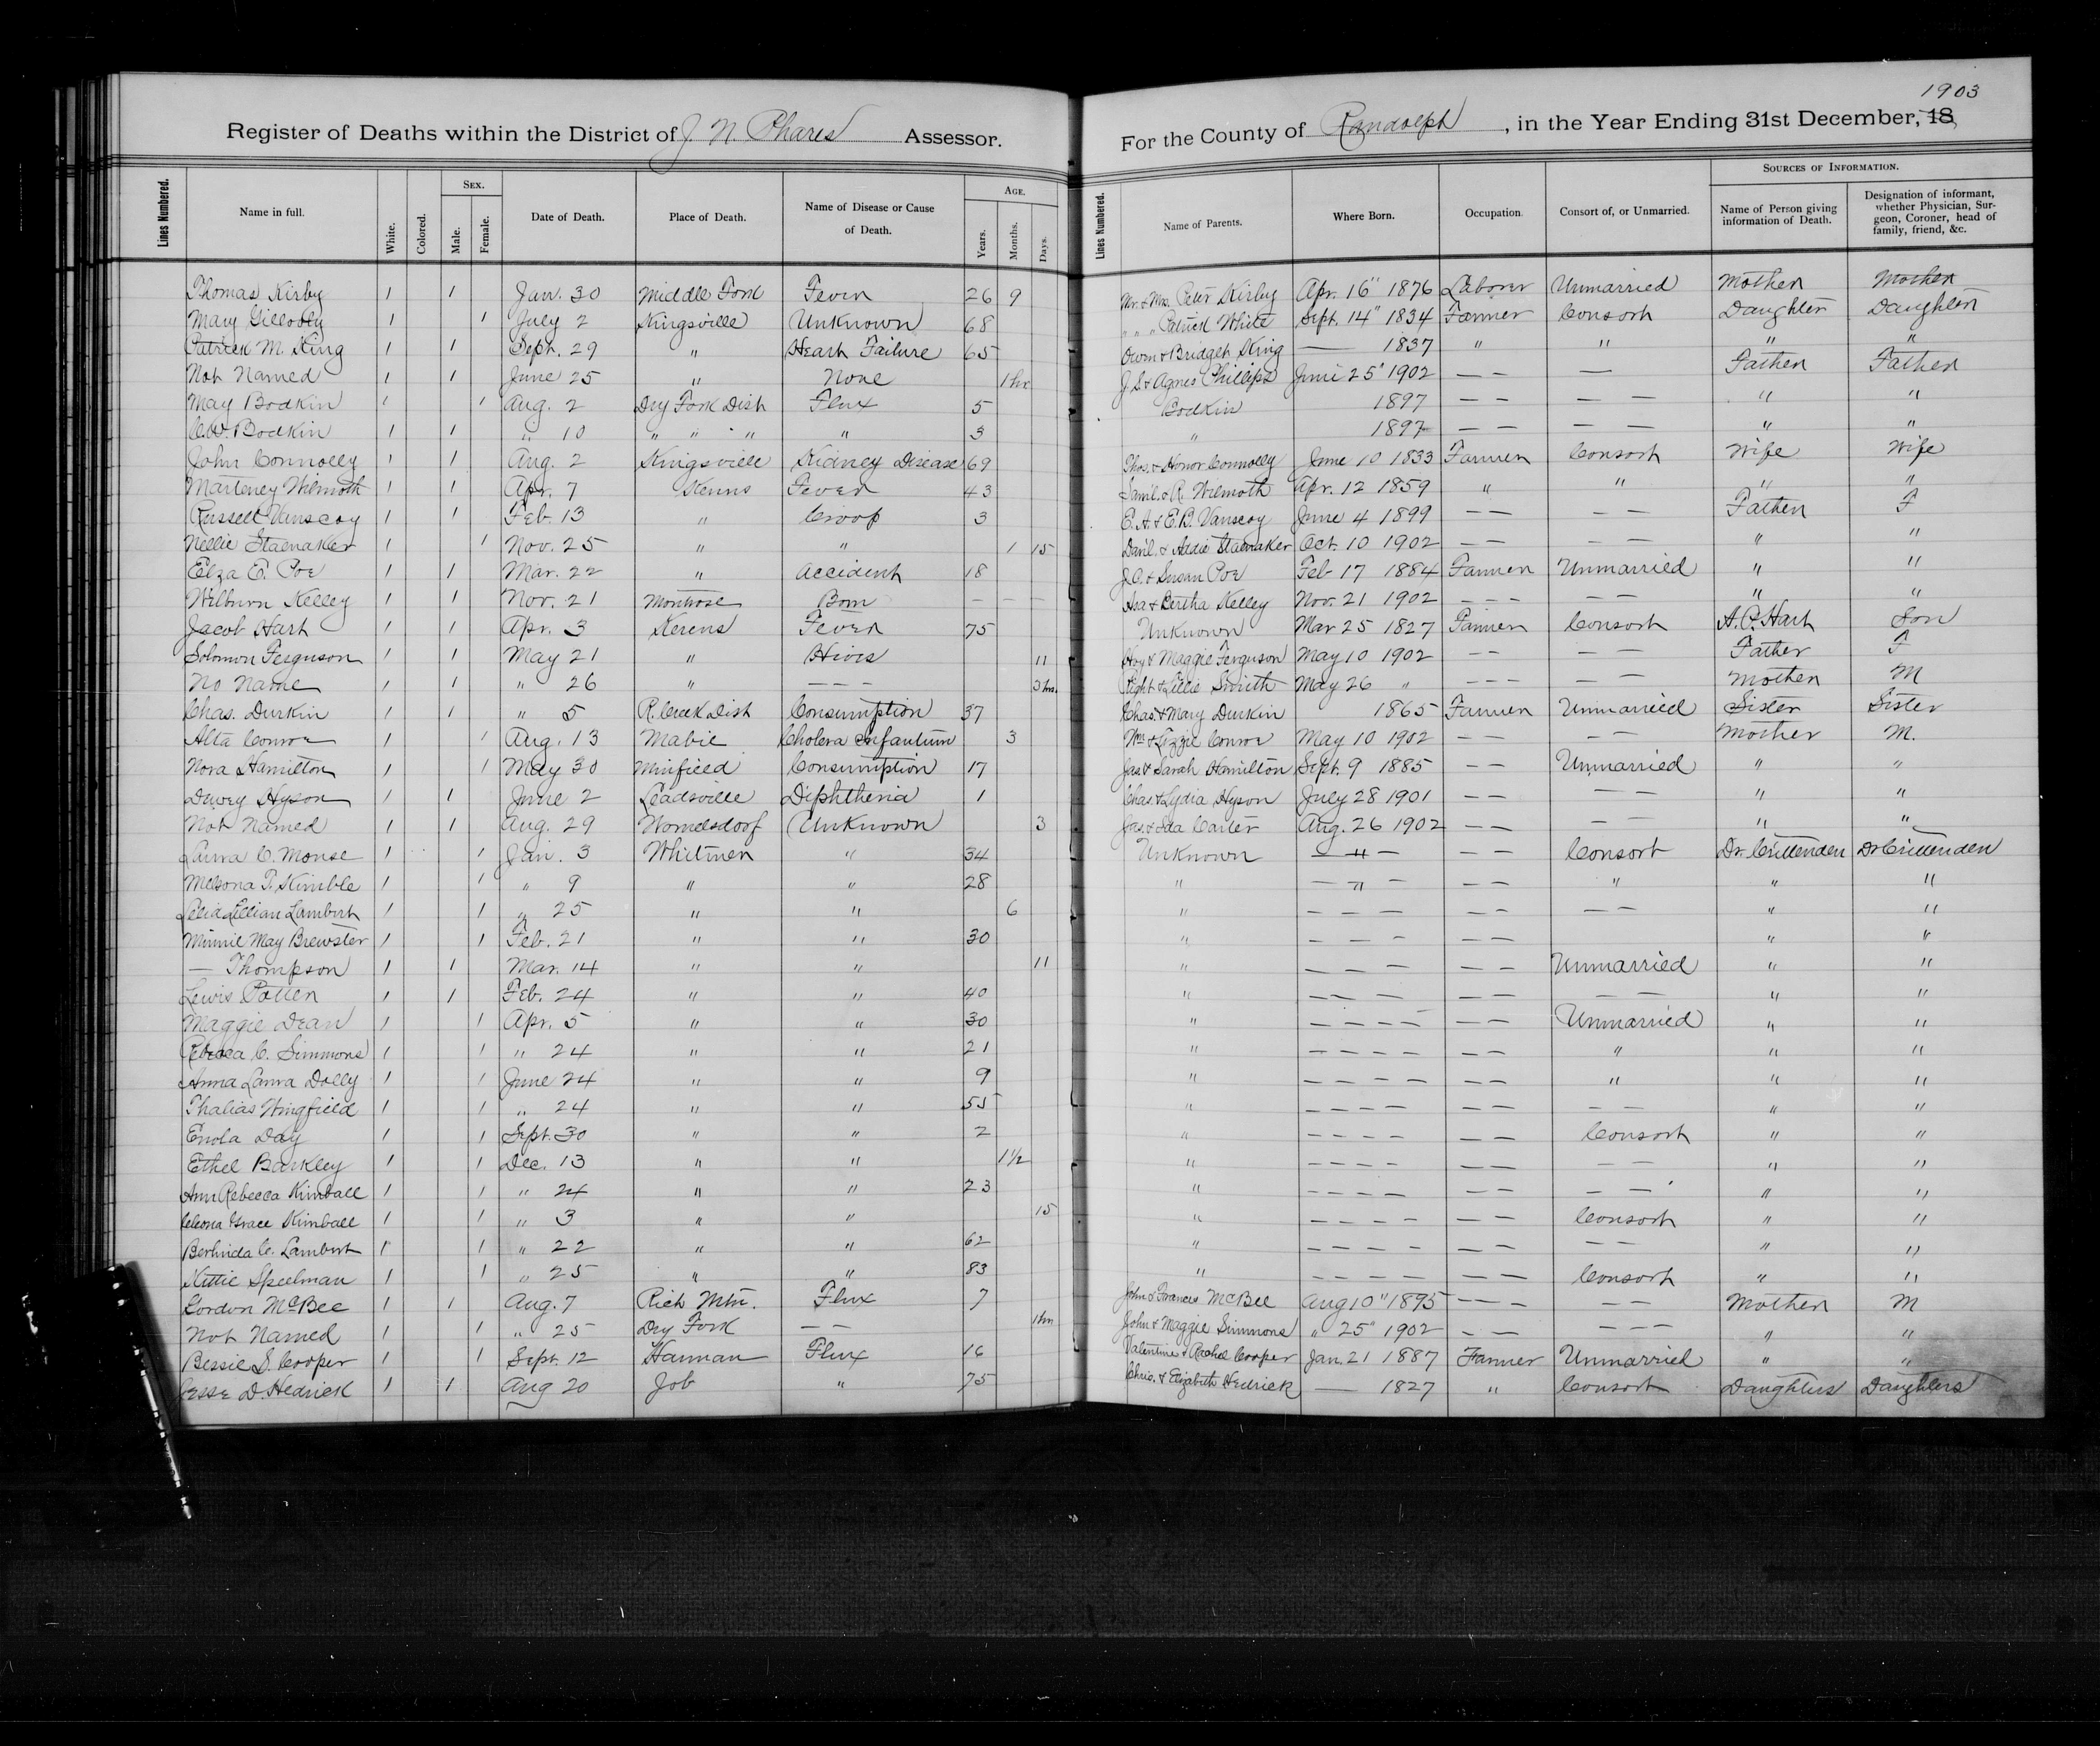 1903
Register of Deaths within the District of J. N. Phares Assessor. For the County of Randolph, in the Year Ending 31st December, 18
Lines Numbered. Name in full. White. Colored. Sex. Male. Female. Date of Death. Place of Death. Name of Disease or Cause of Death. Age. Years. Months. Days. Lines Numbered. Name of Parents. Where Born. Occupation. Consort of, or Unmarried. Sources of Information. Name of Person giving information of Death. Designation of informant, whether Physician, Surgeon, Coroner, head of family, friend, &c.
Thomas Kirby 1 1 Jan. 30 Middle Fork Fever 26 9 Mr. & Mrs. Peter Kirby Apr. 16" 1876 Laborer Unmarried Mother Mother
Mary Gillooly 1 1 July 2 Kingsville Unknown 68 " " " Patrick White Sept. 14" 1834 Farmer Consort Daughter Daughter
Patrick M. King 1 1 Sept. 29 " Heart Failure 65 Owen & Bridget King — 1837 " " " "
Not Named 1 1 June 25 " None 1 hr J. S. & Agnes Phillips June 25" 1902 — — — Father Father
May Bodkin 1 1 Aug. 2 Dry Fork Dist Flux 5 Bodkin 1897 — — — — " "
C.W. Bodkin 1 1 " 10 " " " " 3 " 1897 — — — — " "
John Connolly 1 1 Aug. 2 Kingsville Kidney Disease 69 Thos. & Honor Connolly June 10 1833 Farmer Consort Wife Wife
Marteney Wilmoth 1 1 Apr. 7 Kerens Fever 43 Saml. & R. Wilmoth Apr. 12 1859 " " " "
Russell Vanscoy 1 1 Feb. 13 " Croop 3 E. A. & E. B. Vanscoy June 4 1899 — — — — Father F
Nellie Stalnaker 1 1 Nov. 25 " " 1 15 Danl. & Addie Stalnaker Oct. 10 1902 — — — — " "
Elza E. Poe 1 1 Mar. 22 " Accident 18 J. O. & Susan Poe Feb 17 1884 Farmer Unmarried " "
Wilburn Kelley 1 1 Nov. 21 Montrose Born — — — Asa & Bertha Kelley Nov. 21 1902 — — — — — " "
Jacob Hart 1 1 Apr. 3 Kerens Fever 75 Unknown Mar 25 1827 Farmer Consort A. P. Hart Son
Solomon Ferguson 1 1 May 21 " Hives 11 Hoy & Maggie Ferguson May 10 1902 — — — — Father F
No Name 1 1 " 26 " — — — 3 hrs. & Lillie Smith May 26 " — — — — — Mother M
Chas. Durkin 1 1 " 5 R. Creek Dist Consumption 37 Chas. & Mary Durkin 1865 Farmer Unmarried Sister Sister
Alta Conroe 1 1 Aug. 13 Mabie Cholera Infantum 3 Wm & Lizzie Conroe May 10 1902 — — — — Mother M.
Nora Hamilton 1 1 May 30 Minfield Consumption 17 Jas & Sarah Hamilton Sept. 9 1885 — — Unmarried " "
Dewey Hyson 1 1 June 2 Leadsville Diphtheria 1 Chas. & Lydia Hyson July 28 1901 — — — — " "
Not Named 1 1 Aug. 29 Womelsdorf Unknown 3 Jas. & Ida Carter Aug. 26 1902 — — — — " "
Laura C. Mouse 1 1 Jan. 3 Whitmer " 34 Unknown — " — — — Consort Dr. Crittenden Dr Crittenden
Melsona T. Kimble 1 1 " 9 " " 28 " — " — — — " " "
Lelia Lillian Lambert 1 1 " 25 " " 6 " — — — — — — — " "
Minnie May Brewster 1 1 Feb. 21 " " 30 " — — — — — " "
— Thompson 1 1 Mar. 14 " " 11 " — — — — — Unmarried " "
Lewis Patten 1 1 Feb. 24 " " 40 " — — — — — — — " "
Maggie Dean 1 1 Apr. 5 " " 30 " — — — — — — Unmarried " "
Rebecca C. Simmons 1 1 " 24 " " 21 " — — — — — — " " "
Anna Laura Dolly 1 1 June 24 " " 9 " — — — — — — " " "
Thalias Wingfield 1 1 " 24 " " 55 " — — — — — — — — " "
Enola Day 1 1 Sept. 30 " " 2 " — — — — — — Consort " "
Ethel Barkley 1 1 Dec. 13 " " 1½ " — — — — — — — — " "
Ann Rebecca Kimball 1 1 " 24 " " 23 " — — — — — — — — " "
Grace Kimball 1 1 " 3 " " 15 " — — — — — — Consort " "
Berlinda C. Lambert 1 1 " 22 " " 62 " — — — — — — — — " "
Kittie Speelman 1 1 " 25 " " 83 " — — — — — — Consort " "
Gordon McBee 1 1 Aug. 7 Rich Mtn. Flux 7 John & Frances McBee Aug 10" 1895 — — — — — Mother M
Not Named 1 1 " 25 Dry Fork — — 1 hr John & Maggie Simmons " 25" 1902 — — — — — " "
Bessie S. Cooper 1 1 Sept. 12 Harman Flux 16 Valentine & Rachel Cooper Jan. 21 1887 Farmer Unmarried " "
Jesse D. Hedrick 1 1 Aug 20 Job " 75 Chris. & Elizabeth Hedrick — 1827 " Consort Daughters Daughters